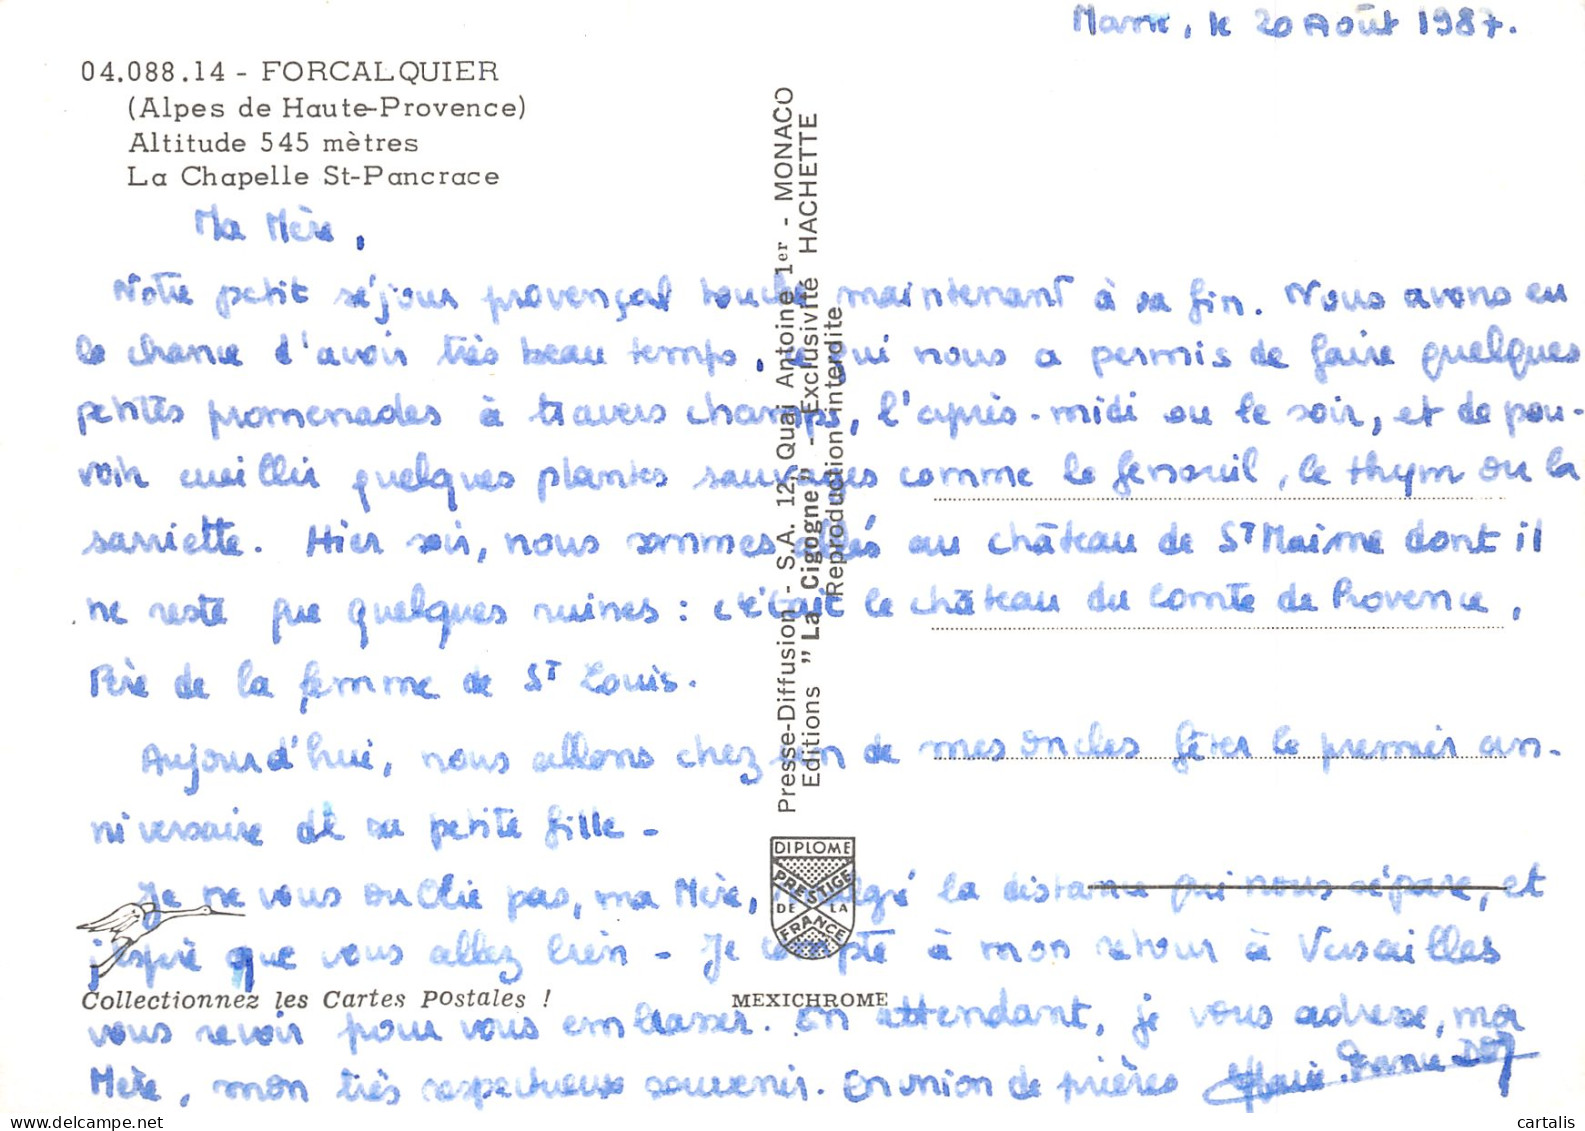 Mane, le 20 Août 1987.
04.088.14 - FORCALQUIER
(Alpes de Haute-Provence)
Altitude 545 mètres
La Chapelle St-Pancrace
Ma Mère,
Notre petit séjour provençal touche maintenant à sa fin. Nous avons eu
la chance d'avoir très beau temps, ce qui nous a permis de faire quelques
petites promenades à travers champs, l'après-midi ou le soir, et de pou-
voir cueillir quelques plantes sauvages comme le fenouil, le thym ou la
sarriette. Hier soir, nous sommes allés au château de St Maime dont il
ne reste que quelques ruines : c'était le château du Comte de Provence,
Père de la femme de St Louis.
Aujourd'hui, nous allons chez un de mes oncles fêter le premier an-
niversaire de sa petite fille -
Je ne vous oublie pas, ma Mère, malgré la distance qui nous sépare, et
j'espère que vous allez bien - Je compte à mon retour à Versailles
vous revoir pour vous embrasser. En attendant, je vous adresse, ma
Mère, mon très respectueux souvenir. En union de prières
Presse-Diffusion - S.A. 12, Quai Antoine 1er - MONACO
Editions " La Cigogne " - Exclusivité HACHETTE
Reproduction interdite
DIPLOME
PRESTIGE
DE LA
FRANCE
Collectionnez les Cartes Postales !
MEXICHROME
cartalis